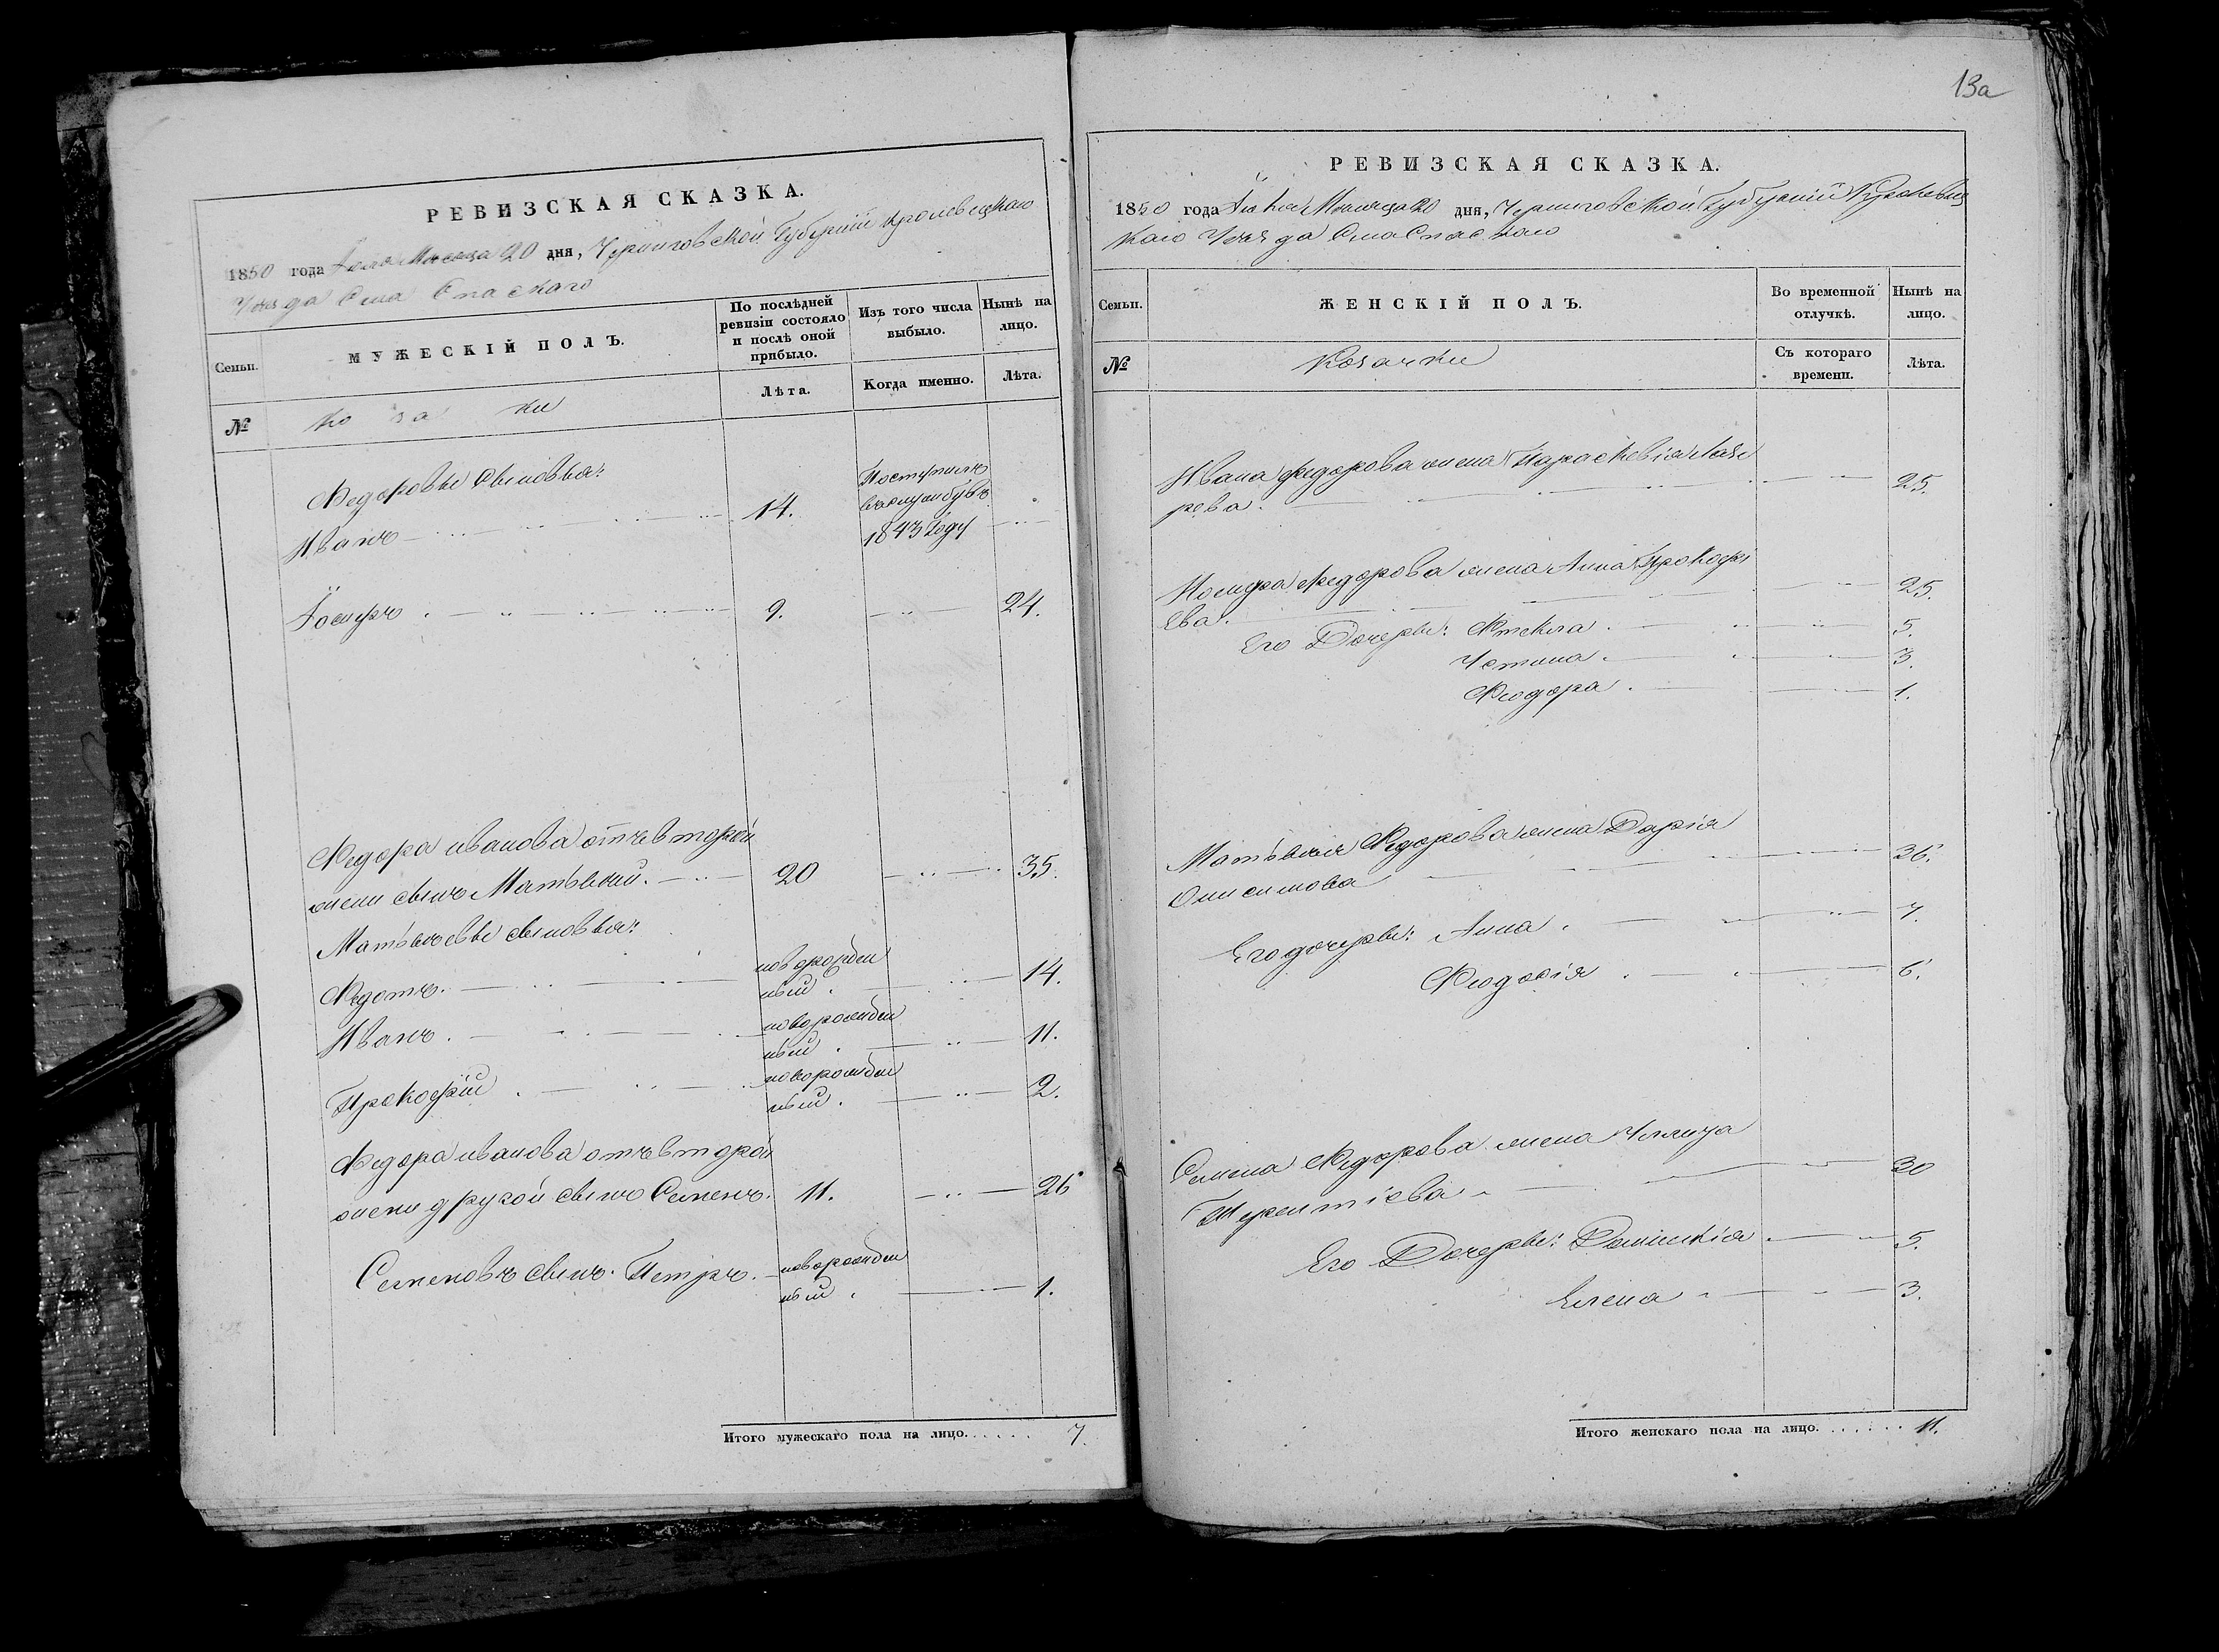 РЕВИЗСКАЯ СКАЗКА.
1850 года Іюля Месяца 20 дня, Черниговской Губерніи Кролевецкаго
Уезда Села Спаскаго
Семьи.
МУЖЕСКІЙ ПОЛЪ.
По послѣдней
ревизіи состояло
и послѣ оной
прибыло.
Изъ того числа
выбыло.
Нынѣ на
лицо.
№
ко за ки
Лѣта.
Когда именно.
Лѣта.
Федоровы сыновья:
Иванъ 14. Поступилъ
въ службу въ
1843 Году
Іосифъ 9. 24.
Федора иванова отъ второй
жени сынъ Матьвій. 20 35.
Матьвъевы сыновья:
Федотъ. новорожден
ный. 14.
Иванъ. новорожден
ный. 11.
Прокофій. новорожден
ный. 2.
Федора иванова отъ второй
жени другой сынъ Семенъ. 11. 26
Семеновъ сынъ. Петръ. новорожден
ный. 1.
Итого мужескаго пола на лицо...... 7.
13а
РЕВИЗСКАЯ СКАЗКА.
1850 года Іюля Месяца 20 дня, Черниговской Губерніи Кролевец
каго Уезда Села Спаскаго
Семьи.
ЖЕНСКІЙ ПОЛЪ.
Во временной
отлучкѣ.
Нынѣ на
лицо.
№
Козачки
Съ котораго
времени.
Лѣта.
Ивана федорова жена Параскевія Лаза
рева. 25.
Иосифа федорова жена Анна Прокофі
Ева. 25.
Его Дочеры: Фтекла. 5.
Устина. 3.
Феодора. 1.
Матьвея Федорова жена Дарія
Онисимова 36.
Его дочеры: Анна. 7.
Феодосія. 6.
Семена Федорова жена Улинца
Терентіева 30
Его Дочеры: Домникія. 5.
Елена 3.
Итого женскаго пола на лицо...... 11.